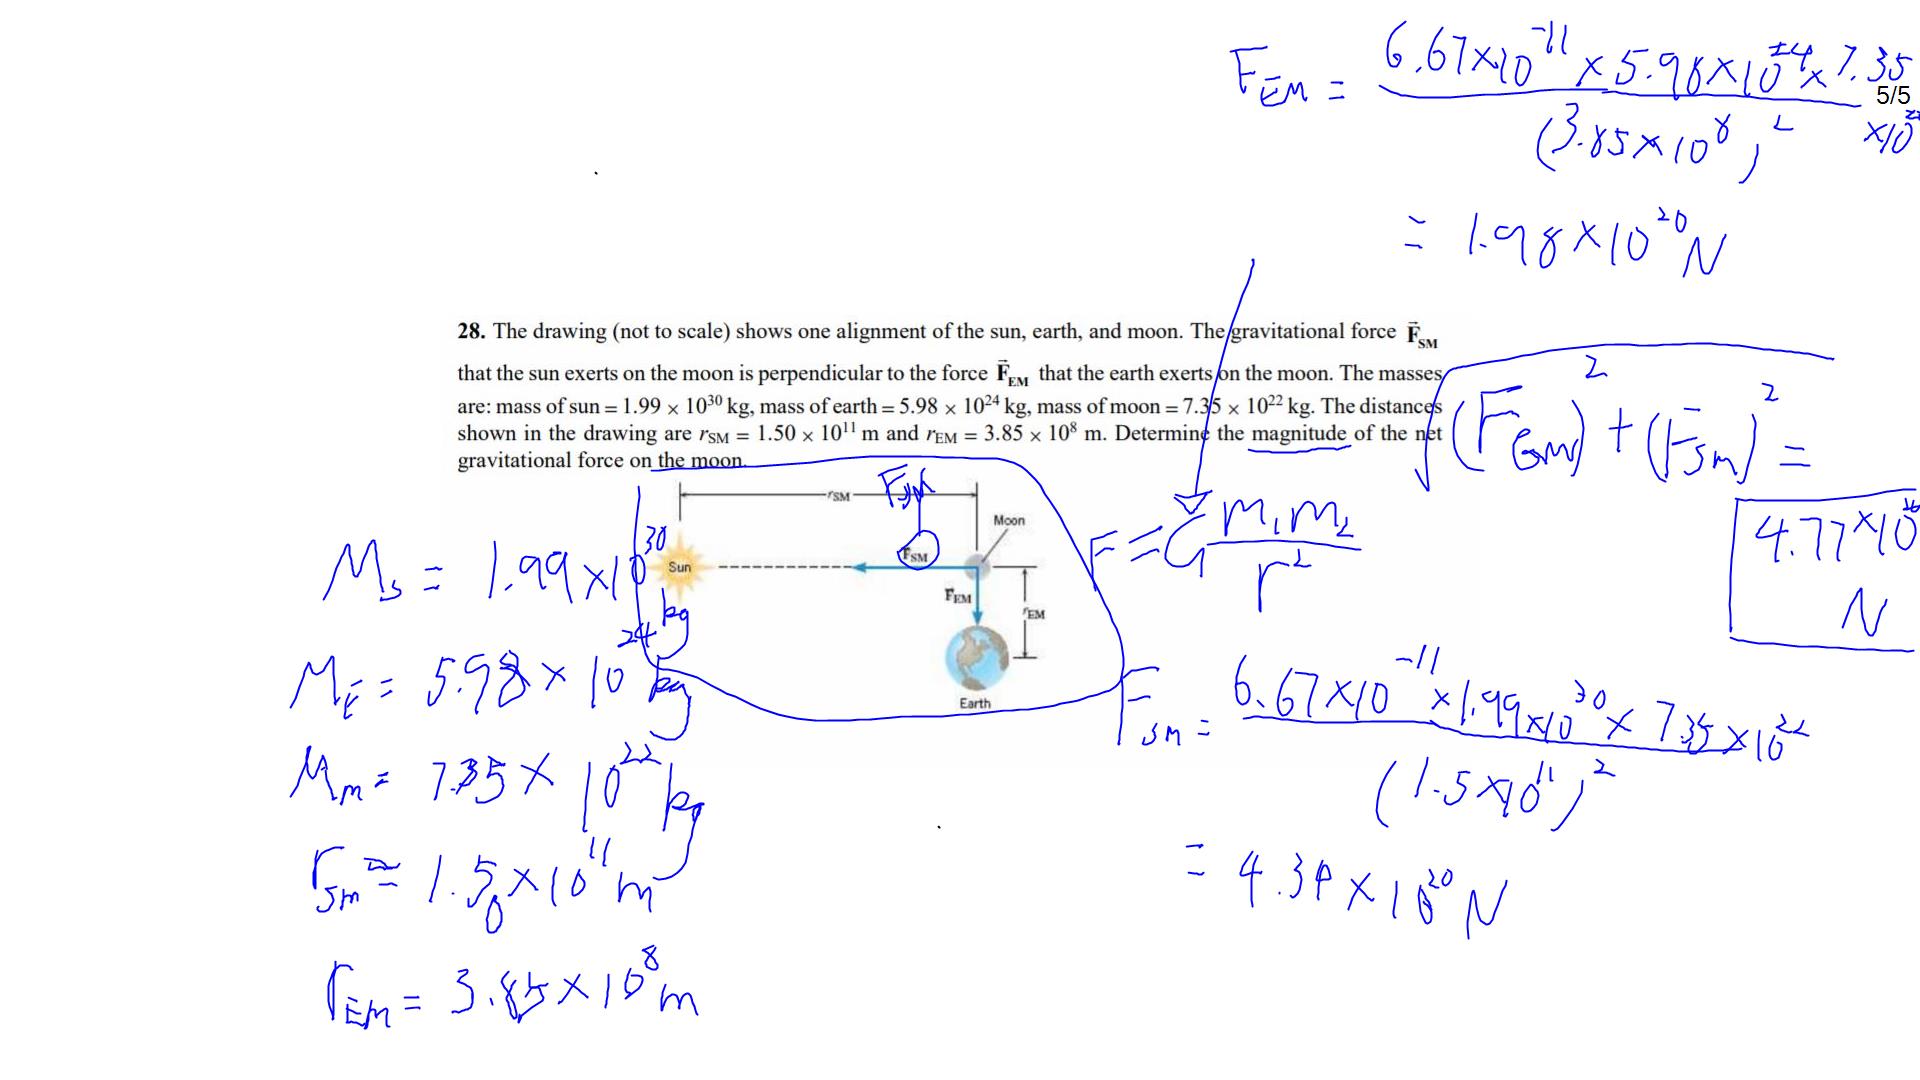 F_EM = 6.67×10^-11 × 5.98×10^24 × 7.35 ×10^22 / (3.85×10^8)^2
5/5
= 1.98×10^20 N
28. The drawing (not to scale) shows one alignment of the sun, earth, and moon. The gravitational force F⃗_SM
that the sun exerts on the moon is perpendicular to the force F⃗_EM that the earth exerts on the moon. The masses
are: mass of sun = 1.99 × 10^30 kg, mass of earth = 5.98 × 10^24 kg, mass of moon = 7.35 × 10^22 kg. The distances
shown in the drawing are r_SM = 1.50 × 10^11 m and r_EM = 3.85 × 10^8 m. Determine the magnitude of the net
gravitational force on the moon.
√((F_EM)^2 + (F_SM)^2) =
4.77×10^20
N
r_SM
F_SM
Moon
Sun
F⃗_SM
F⃗_EM
r_EM
Earth
M_s = 1.99×10^30 kg
M_E = 5.98×10^24 kg
M_m = 7.35×10^22 kg
r_sm = 1.50×10^11 m
r_EM = 3.85×10^8 m
F = G m₁m₂ / r^2
F_sm = 6.67×10^-11 ×1.99×10^30 × 7.35×10^22 / (1.5×10^11)^2
= 4.34×10^20 N